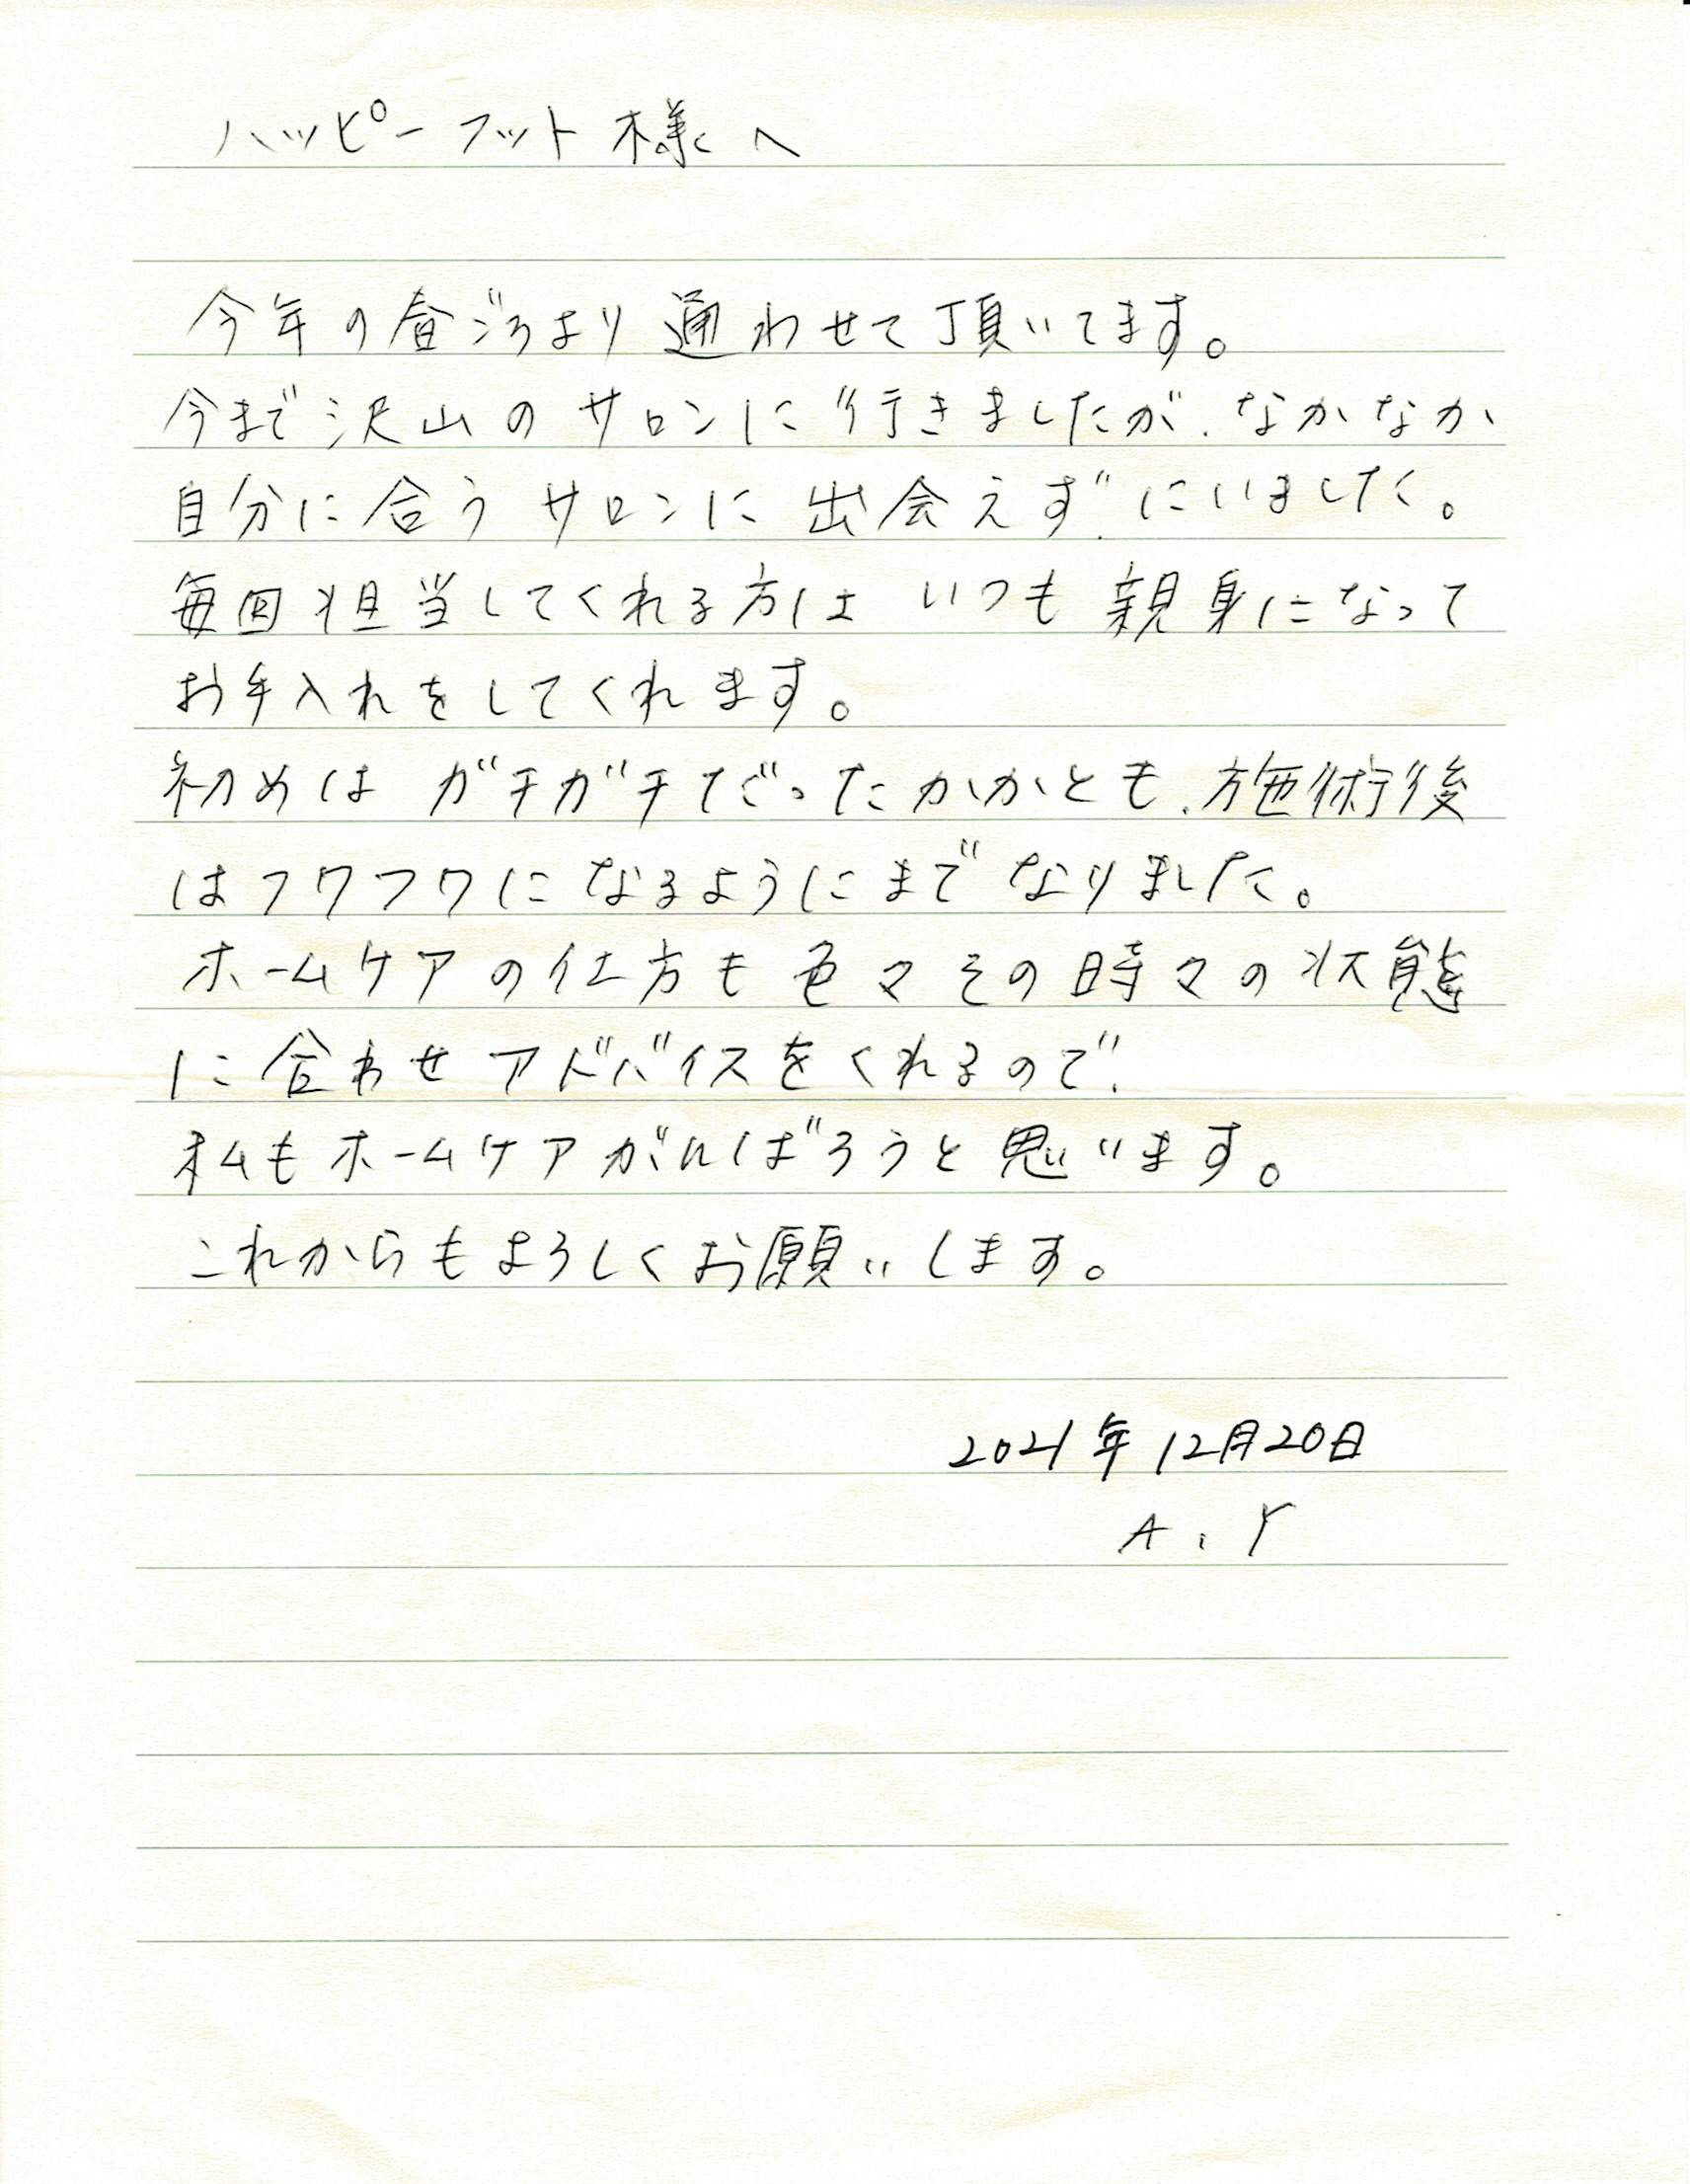 ハッピーフット様へ
今年の春ごろより通わせて頂いてます。
今まで沢山のサロンに行きましたが、なかなか
自分に合うサロンに出会えずにいました。
毎回担当してくれる方はいつも親身になって
お手入れをしてくれます。
初めはガチガチでったかかとも、施術後
はフワフワになるようにまでなりました。
ホームケアの仕方も色々その時々の状態
に合わせアドバイスをくれるので、
私もホームケアがんばろうと思います。
これからもよろしくお願いします。
2021年12月20日
A.Y